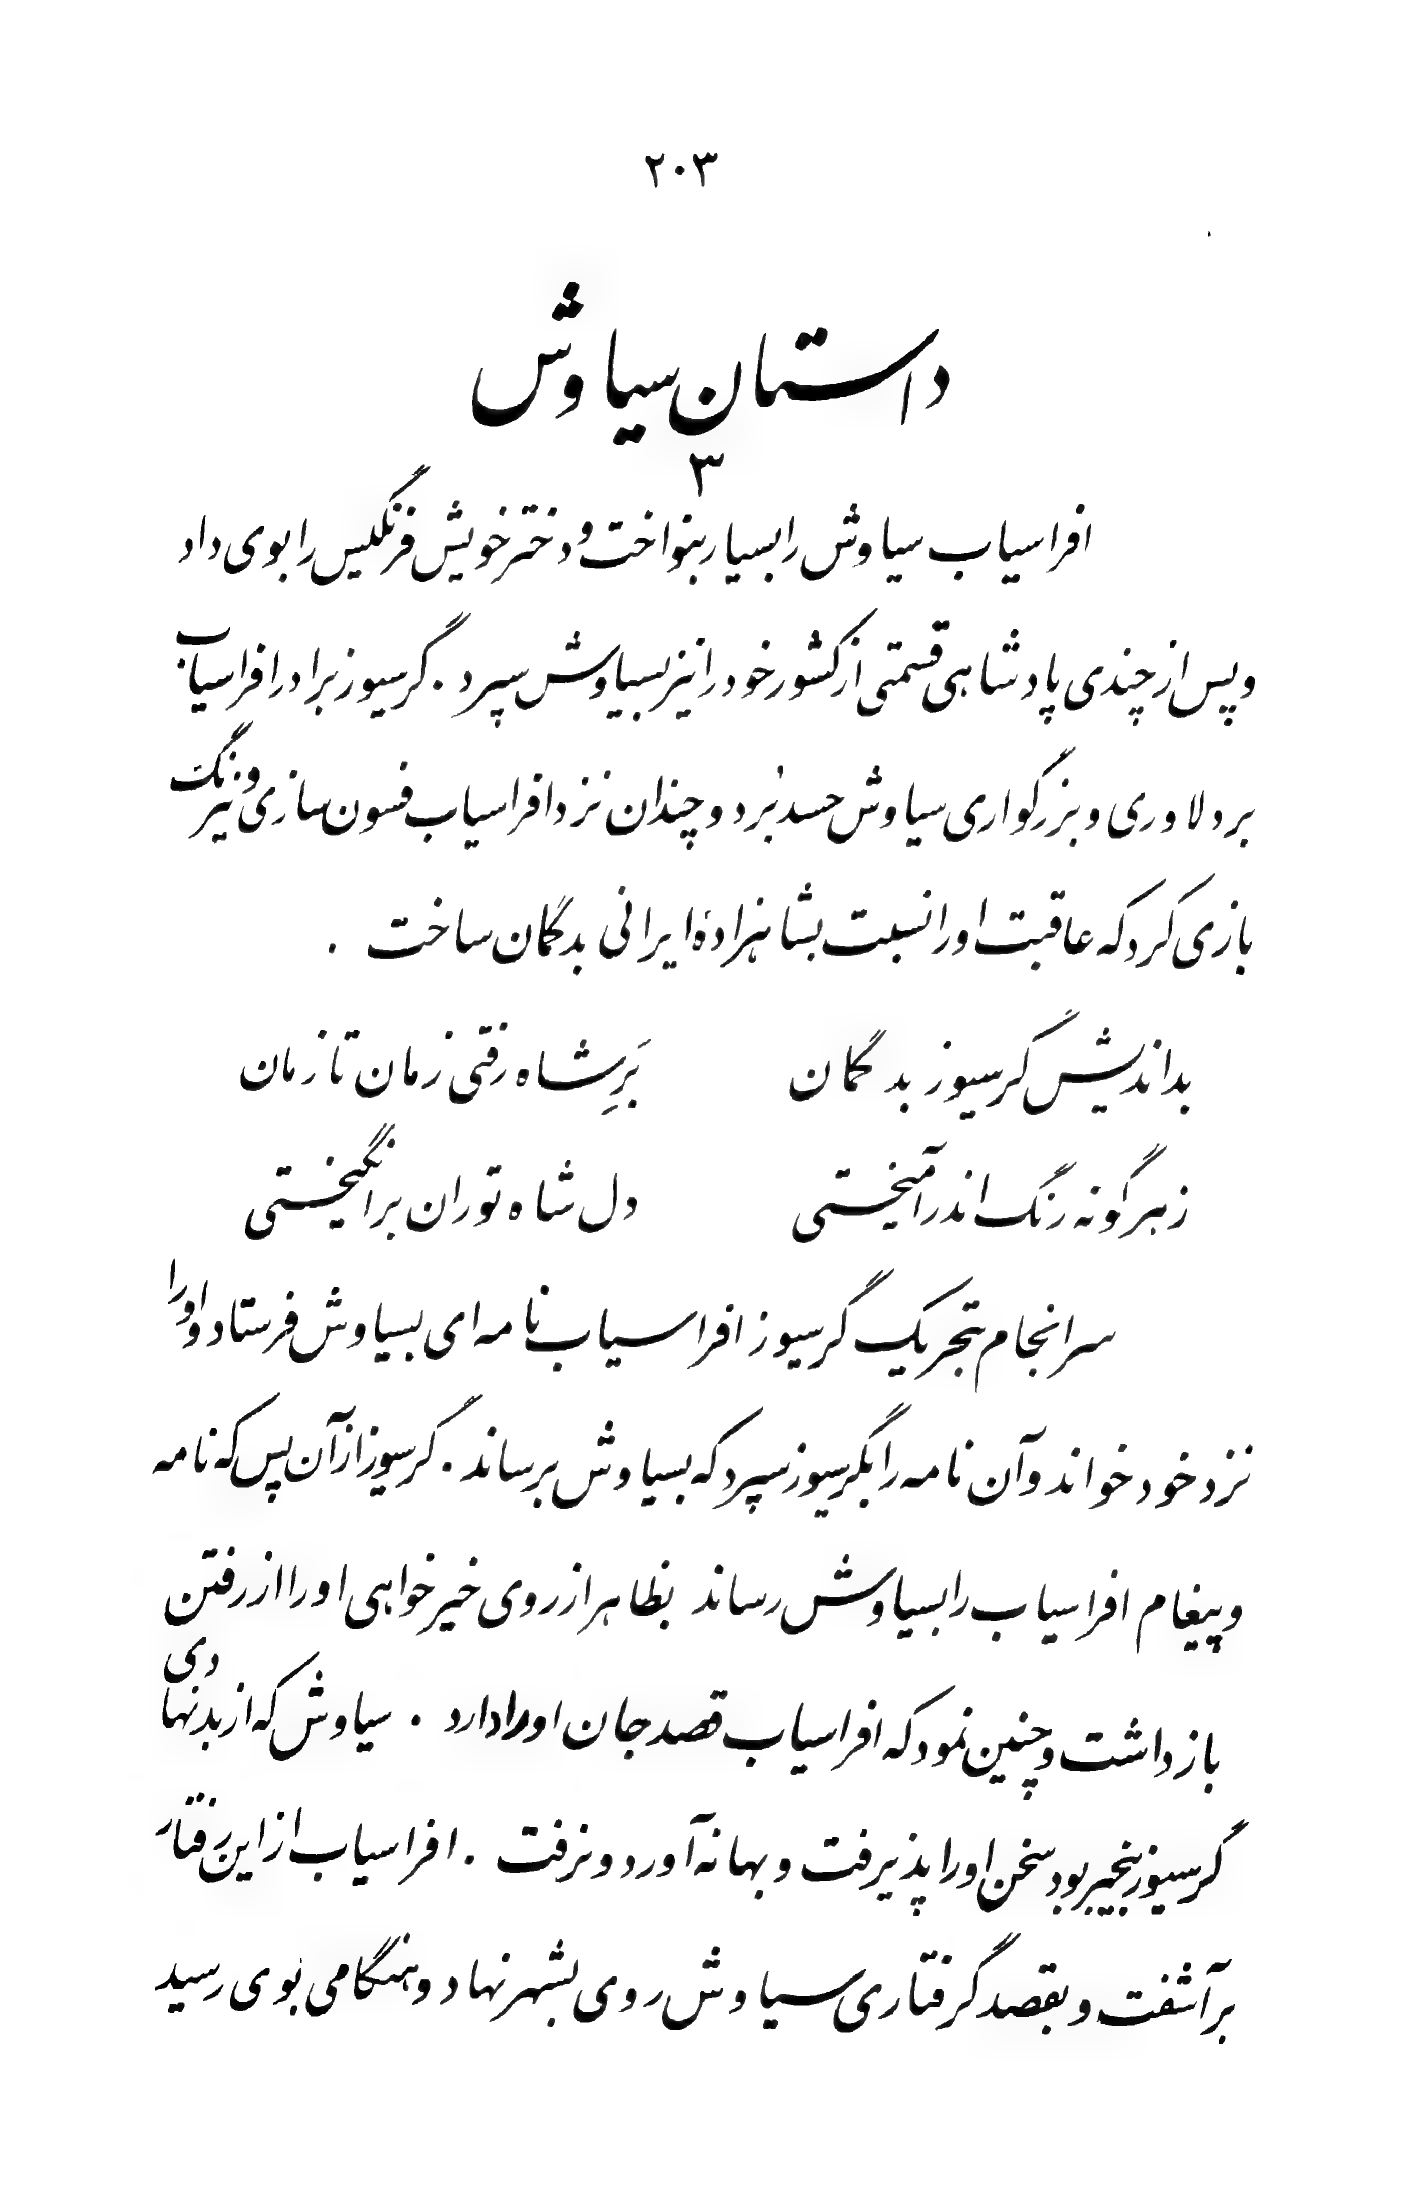 ۲۰۳
داستان سیاوش
۳
افراسیاب سیاوش را بسیار بنواخت و دختر خویش فرنگیس را بوی داد
و پس از چندی پادشاهی قسمتی از کشور خود را نیز بسیاوش سپرد . گرسیوز برادر افراسیاب
بر دلاوری و بزرگواری سیاوش حسد بُرد و چندان نزد افراسیاب فسون سازی و نیرنگ
بازی کرد که عاقبت او را نسبت بشاهزادهٔ ایرانی بدگمان ساخت .
بداندیش گرسیوز بدگمان    بَرِ شاه رفتی زمان تا زمان
ز هر گونه رنگ اندر آمیختی    دل شاه توران برانگیختی
سرانجام بتحریک گرسیوز افراسیاب نامه ای بسیاوش فرستاد و او را
نزد خود خواند و آن نامه را بگرسیوز سپرد که بسیاوش برساند . گرسیوز از آن پس که نامه
و پیغام افراسیاب را بسیاوش رساند بظاهر از روی خیرخواهی او را از رفتن
بازداشت و چنین نمود که افراسیاب قصد جان او را دارد . سیاوش که از بدنهادی
گرسیوز بیخبر بود سخن او را پذیرفت و بهانه آورد و نرفت . افراسیاب از این رفتار
برآشفت و بقصد گرفتاری سیاوش روی بشهر نهاد و هنگامی بوی رسید